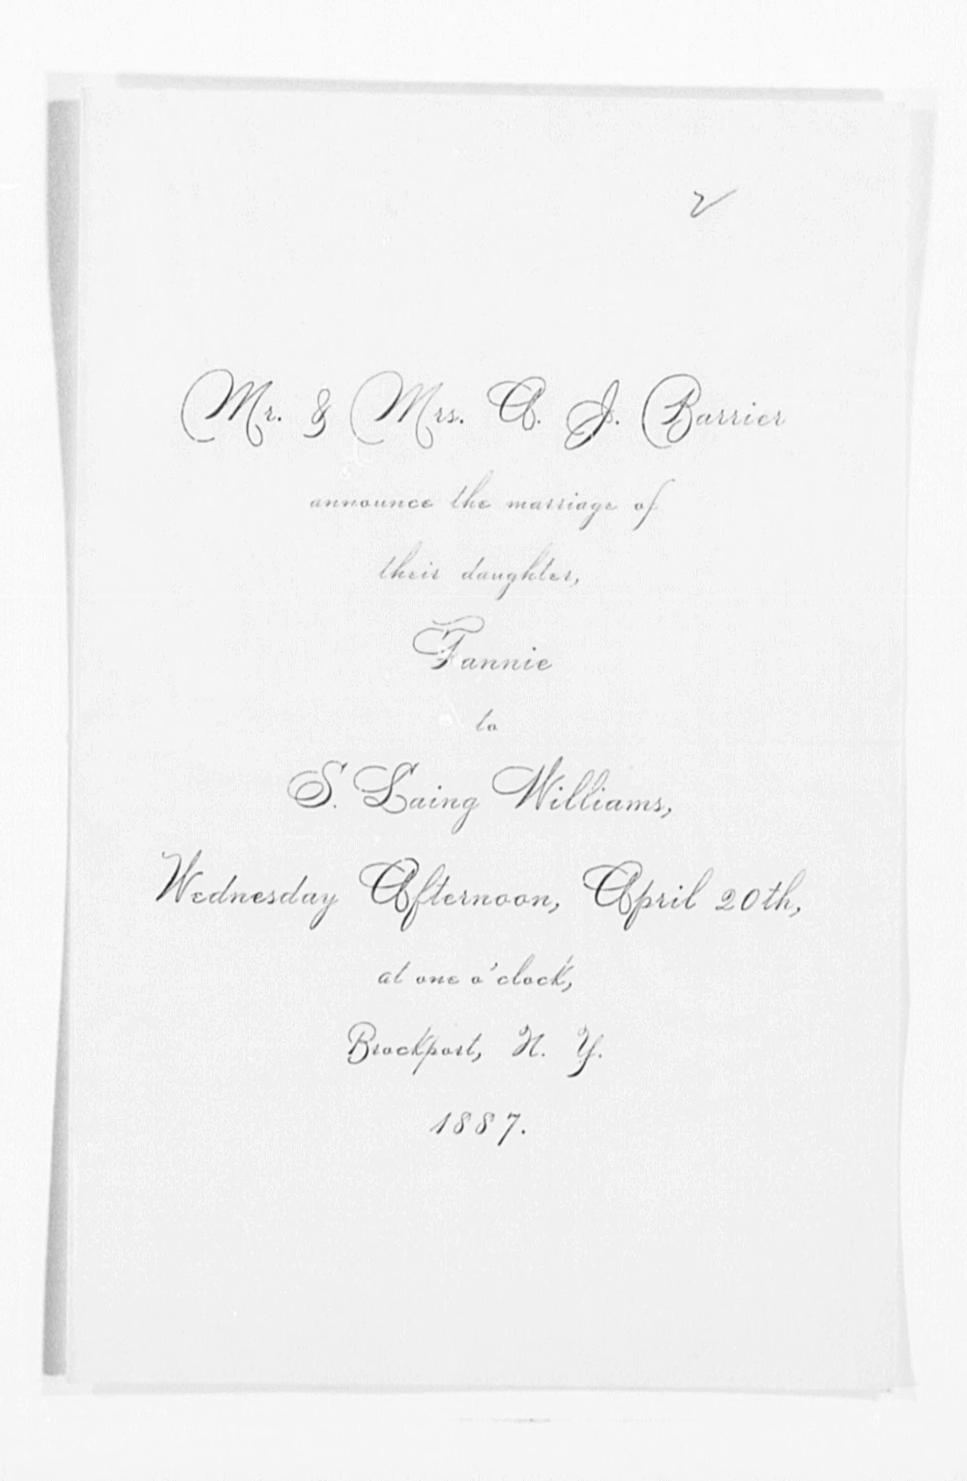 2
Mr. & Mrs. A. J. Barrier
announce the marriage of
their daughter,
Fannie
to
S. Laing Williams,
Wednesday Afternoon, April 20th,
at one o'clock,
Brockport, N. Y.
1887.